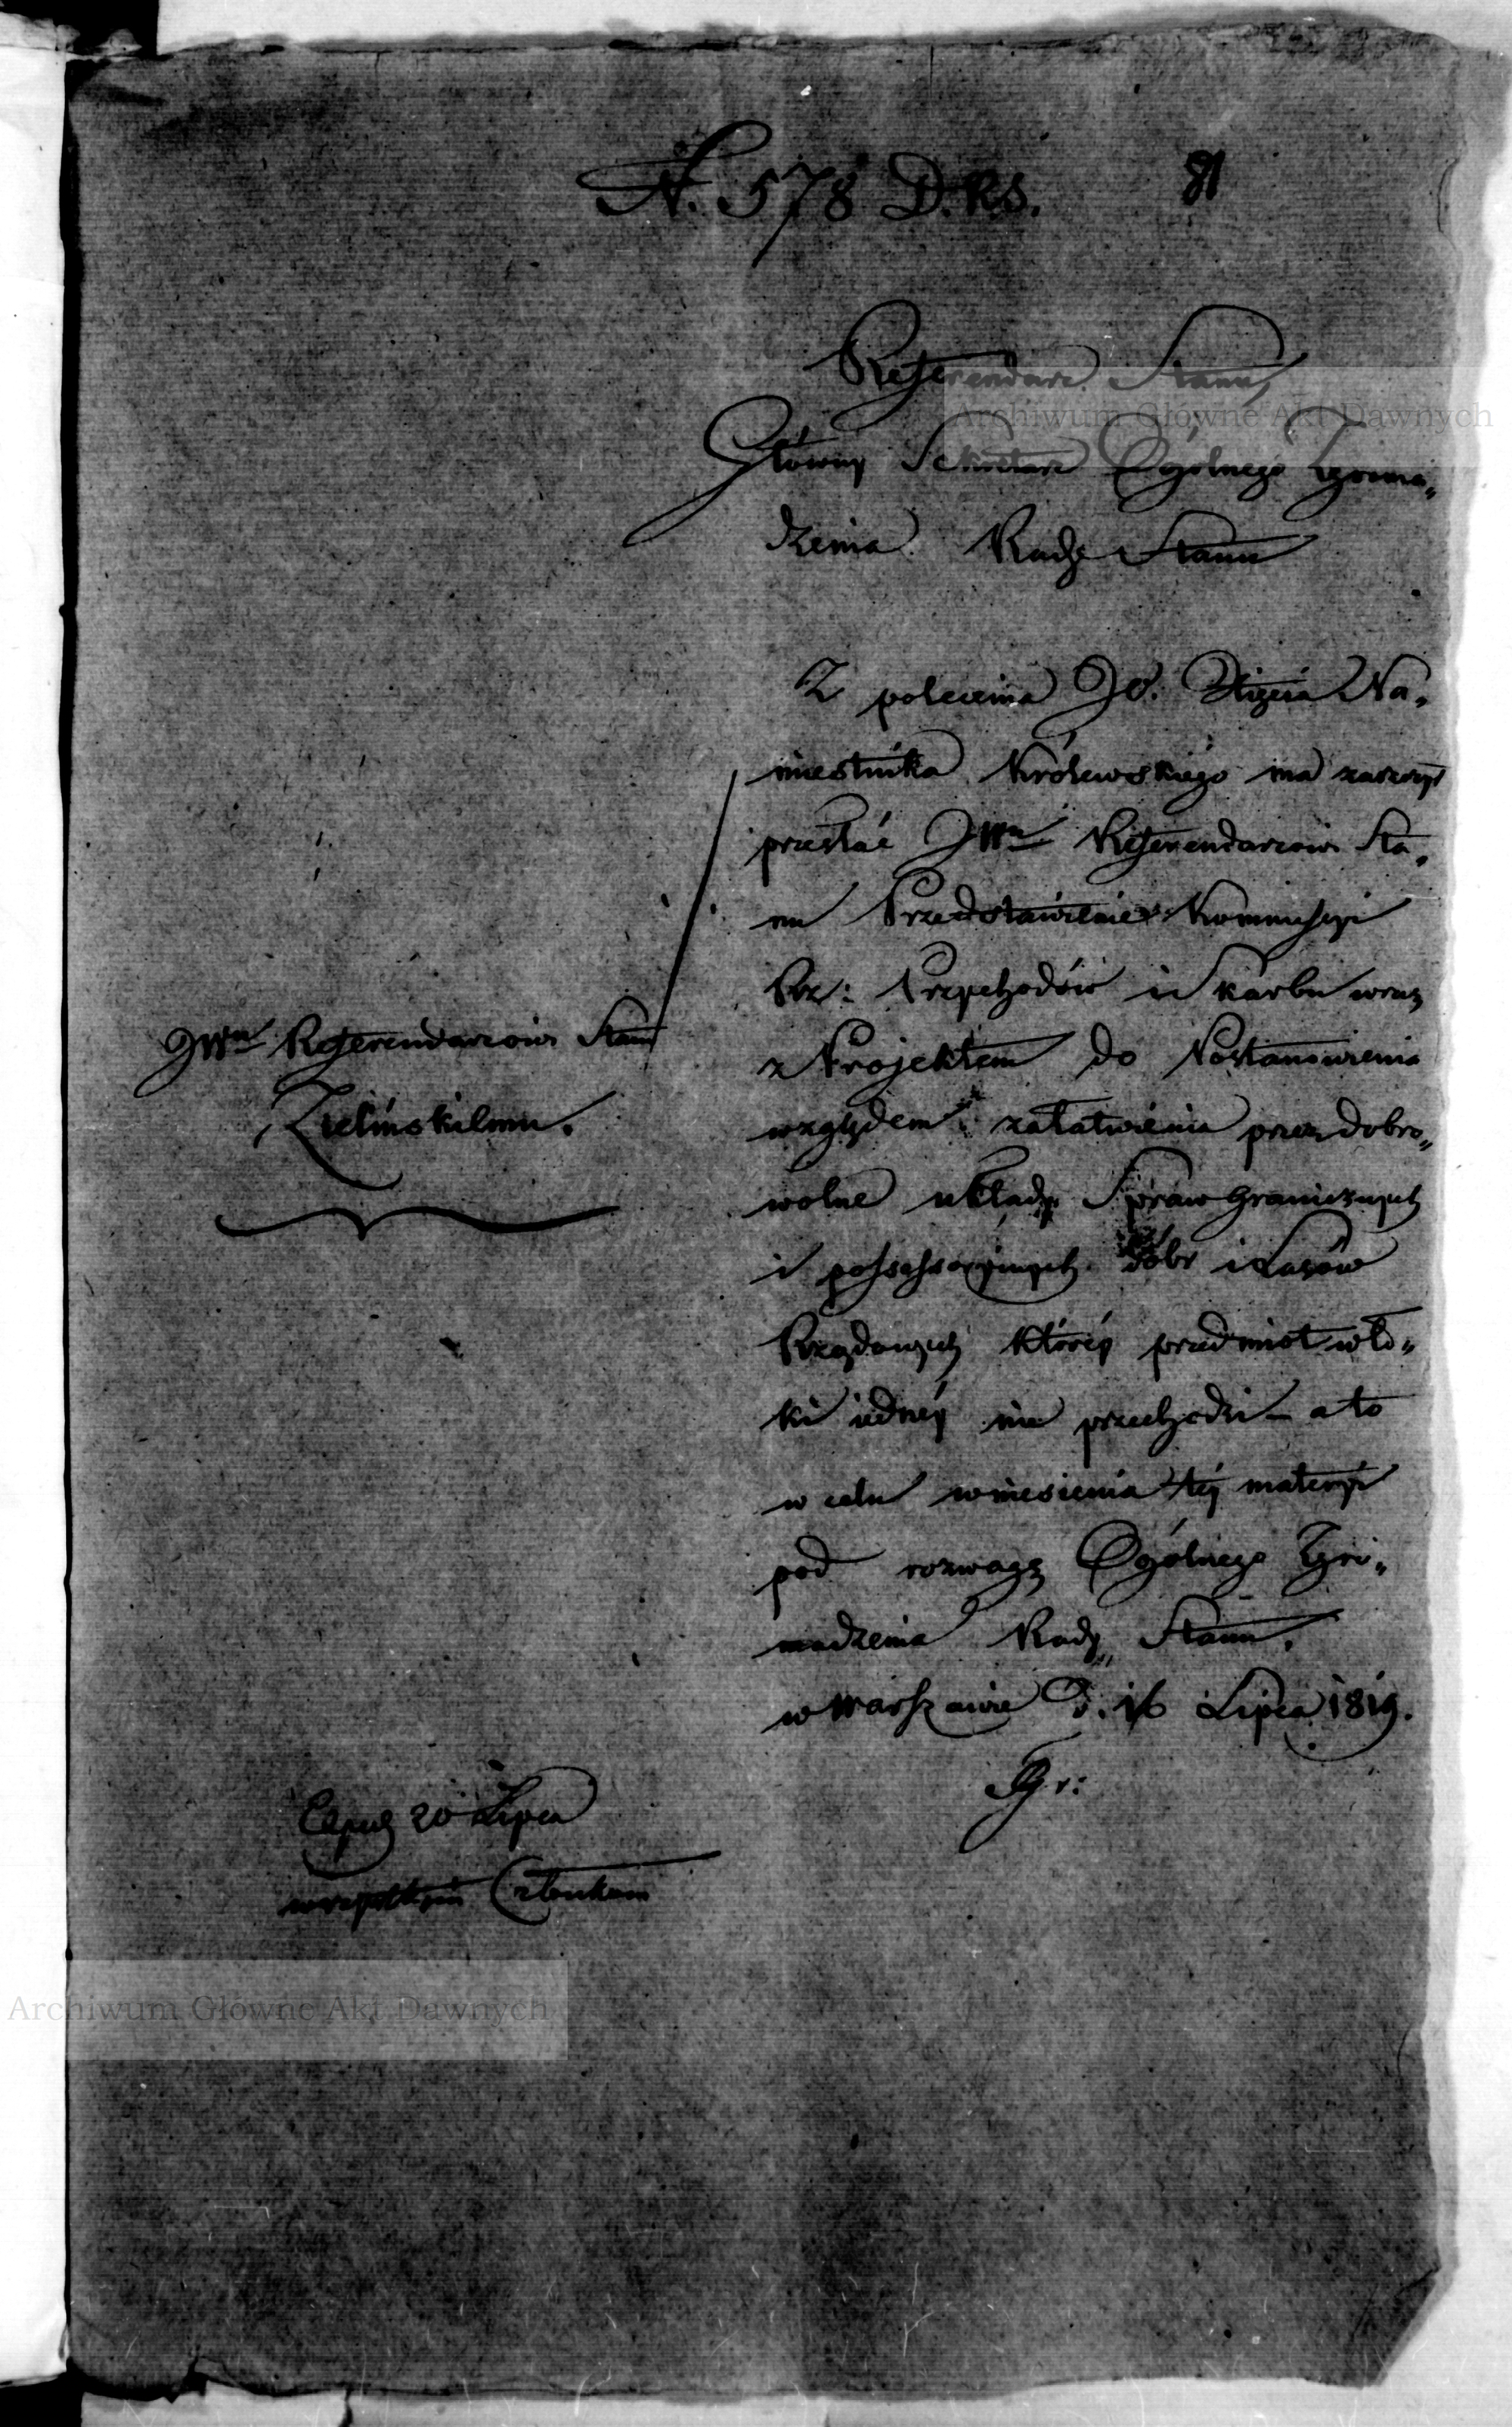 N. 578 D.R.S.
81
Referendarz Stanu,
Główny Sekretarz Ogólnego Zgroma„
dzenia Rady Stanu
Z polecenia JO. Xięcia Na„
miestnika Królewskiego ma zaszczyt
przesłać JWmu Referendarzowi Sta„
nu Przedstawienie Kommissyi
Rz: Przychodów i Skarbu wraz
z Projektem do Postanowienia
względem załatwienia przez dobro„
wolne układy Spraw granicznych
i possessoryinych dóbr i Lasów
Rządowych którey przedmiot włó„
ki iedney nie przechodzi – a to
w celu wniesienia tey materyi
pod rozwagę Ogólnego Zgro„
madzenia Rady Stanu.
w Warszawie d. 16 Lipca 1819.
JWmu Referendarzowi Stanu
Zielińskiemu.
20 Lipca
wszystkim Członkom
Archiwum Główne Akt Dawnych
Archiwum Główne Akt Dawnych